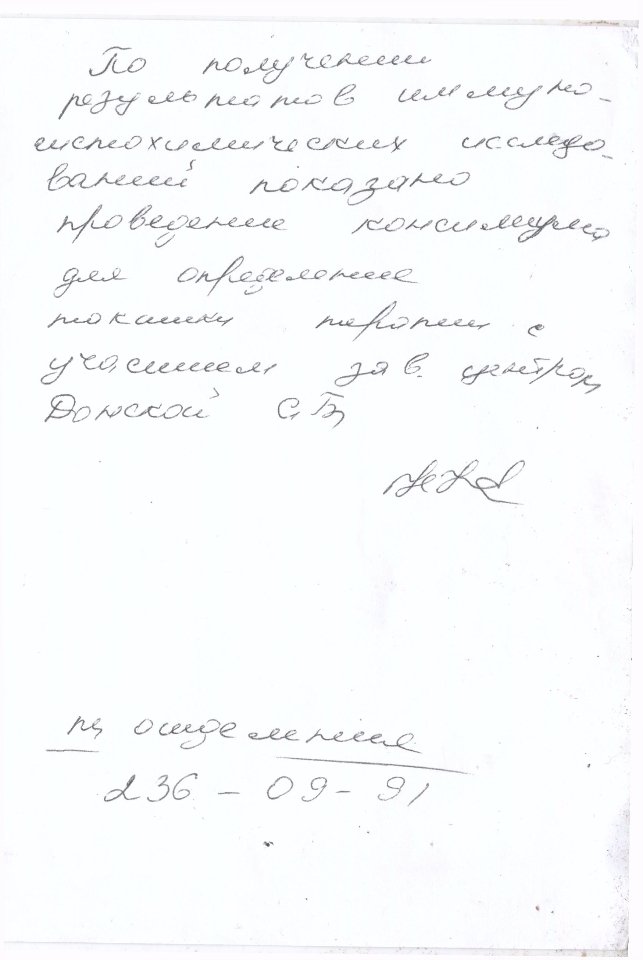 По получении
результатов иммуно-
гистохимических исследо-
ваний показано
проведение консилиума
для определение
тактики терапии с
участием зав. центром
Донской С.В.
тц отделения
236-09-91